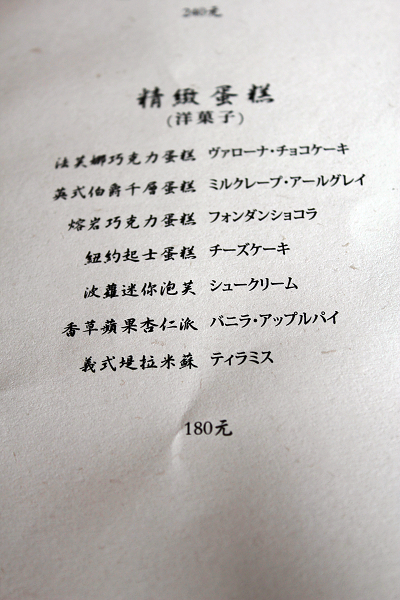 240元
精緻蛋糕
(洋菓子)
法芙娜巧克力蛋糕 ヴァローナ・チョコケーキ
英式伯爵千層蛋糕 ミルクレープ・アールグレイ
熔岩巧克力蛋糕 フォンダンショコラ
紐約起士蛋糕 チーズケーキ
波蘿迷你泡芙 シュークリーム
香草蘋果杏仁派 バニラ・アップルパイ
義式堤拉米蘇 ティラミス
180元